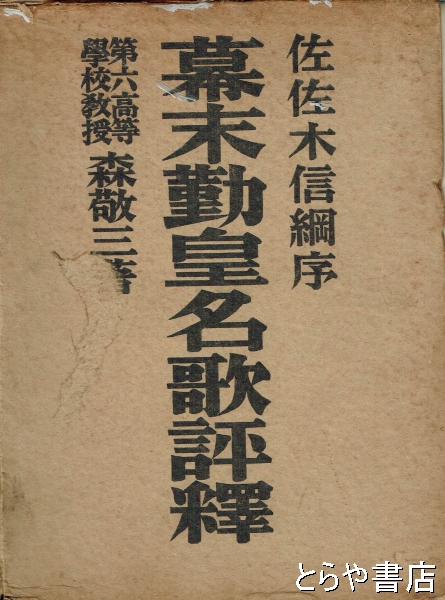 佐佐木信綱序
幕末勤皇名歌評釋
第六高等
學校教授
森敬三著
とらや書店